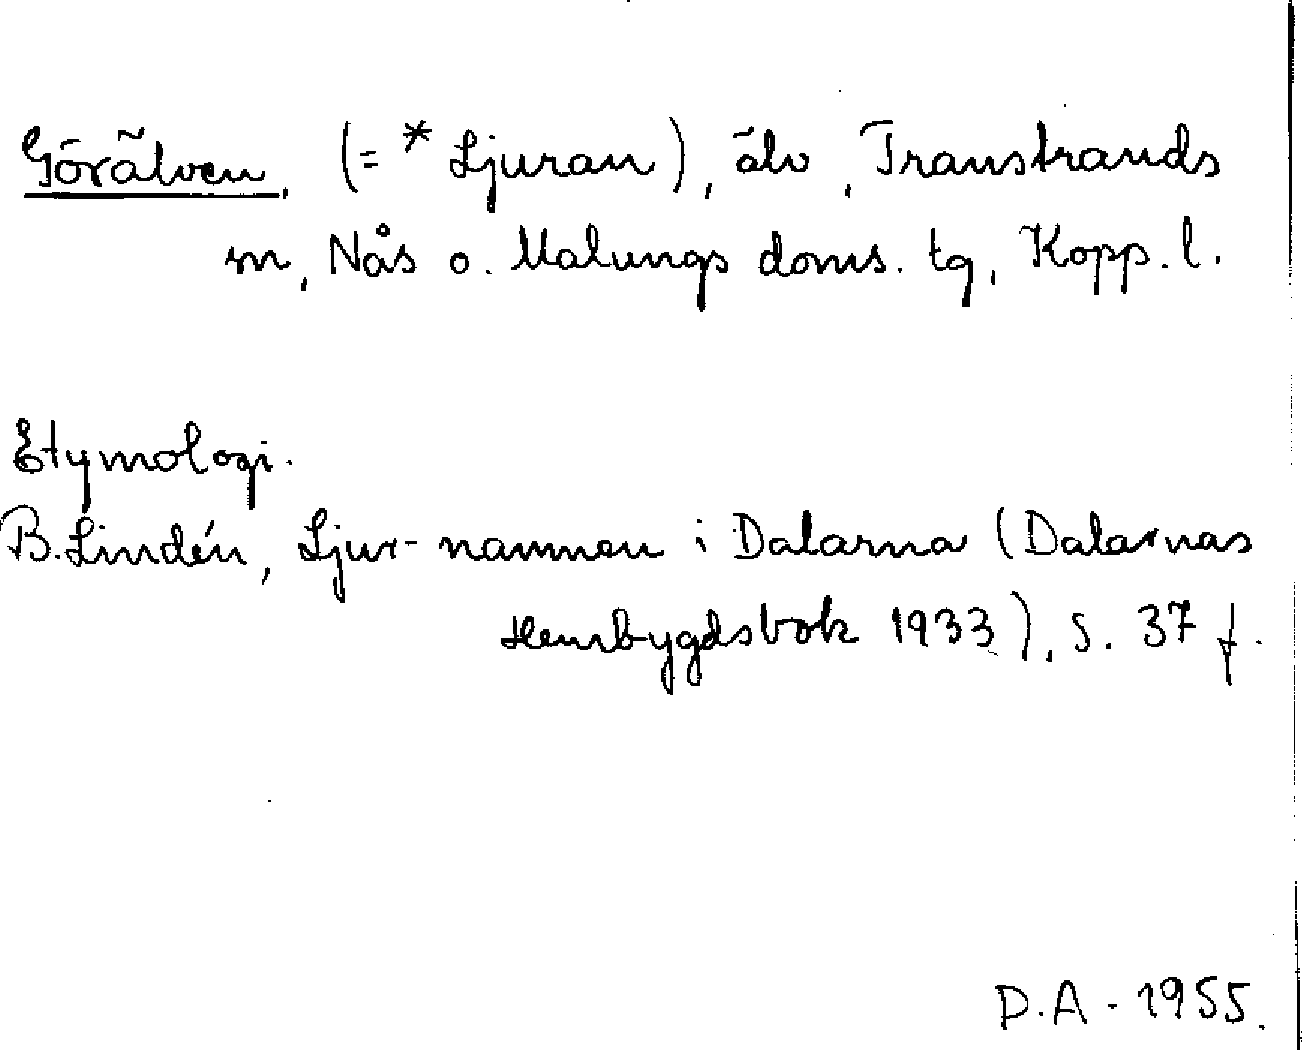 Görälven, (= * Ljuran), älv, Transtrands
sn, Nås o. Malungs doms. tg, Kopp. l.
Etymologi.
B. Lindén, Ljur-namnen i Dalarna (Dalarnas
Hembygdsbok 1933), s. 37 f.
P.A - 1955.